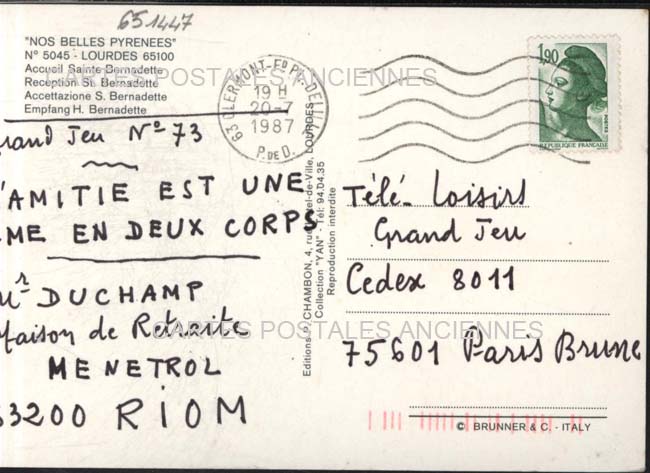 651447
"NOS BELLES PYRENEES"
N° 5045 - LOURDES 65100
Accueil Sainte Bernadette
Reception St. Bernadette
Accettazione S. Bernadette
Empfang H. Bernadette
CARTES POSTALES ANCIENNES
63 CLERMONT-FD PPAL
19 H
20-7
1987
P. de D.
1,90
POSTES
REPUBLIQUE FRANÇAISE
Grand Jeu N° 73
'AMITIE EST UNE
ME EN DEUX CORPS
DUCHAMP
Maison de Retraite
MENETROL
63200 RIOM
Editions CHAMBON, 4, rue Hôtel-de-Ville, LOURDES
Collection "YAN" - Tél: 94.04.35
Reproduction interdite
Télé-Loisirs
Grand Jeu
Cedex 8011
75601 Paris Brune
CARTES POSTALES ANCIENNES
© BRUNNER & C. - ITALY